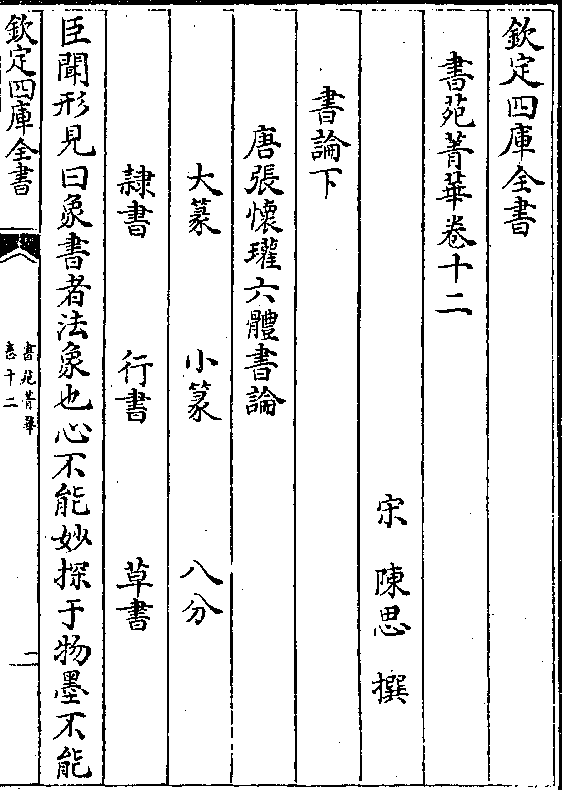 欽定四庫全書
書苑菁華卷十二
宋　陳思　撰
書論下
唐張懷瓘六體書論
大篆　小篆　八分
隷書　行書　草書
臣聞形見曰象書者法象也心不能妙探于物墨不能
欽定四庫全書
書苑菁華
卷十二
一